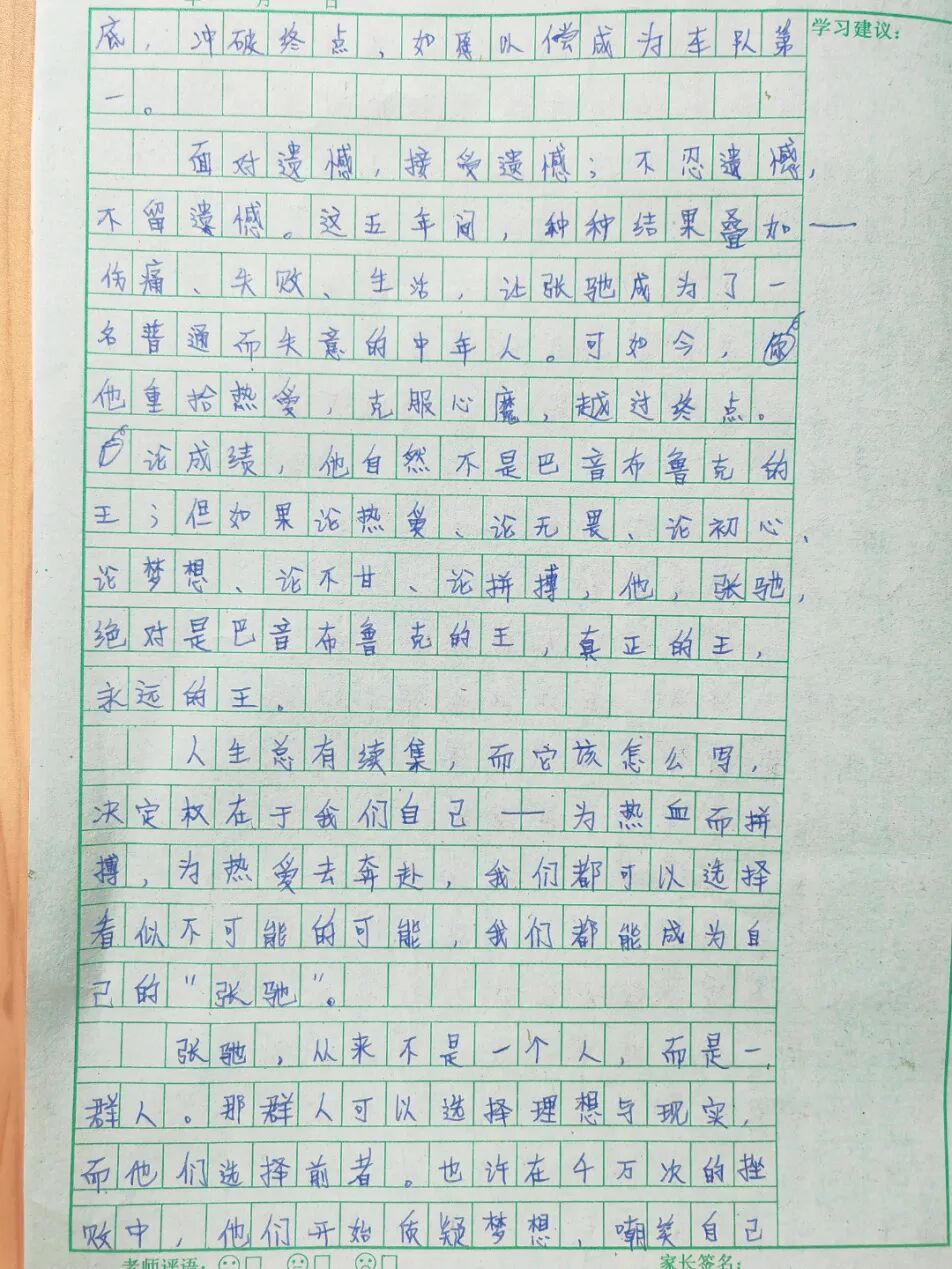 年 月 日
学习建议：
底，冲破终点，如愿以偿成为车队第
一。
面对遗憾，接受遗憾；不忍遗憾，
不留遗憾。这五年间，种种结果叠加——
伤痛、失败、生活，让张驰成为了一
名普通而失意的中年人。可如今，
他重拾热爱，克服心魔，越过终点。
论成绩，他自然不是巴音布鲁克的
王；但如果论热爱、论无畏、论初心、
论梦想、论不甘、论拼搏，他，张驰，
绝对是巴音布鲁克的王，真正的王，
永远的王。
人生总有续集，而它该怎么写，
决定权在于我们自己——为热血而拼
搏，为热爱去奔赴，我们都可以选择
看似不可能的可能，我们都能成为自
己的“张驰”。
张驰，从来不是一个人，而是一
群人。那群人可以选择理想与现实，
而他们选择前者。也许在千万次的挫
败中，他们开始质疑梦想，嘲笑自己
老师评语： 家长签名：